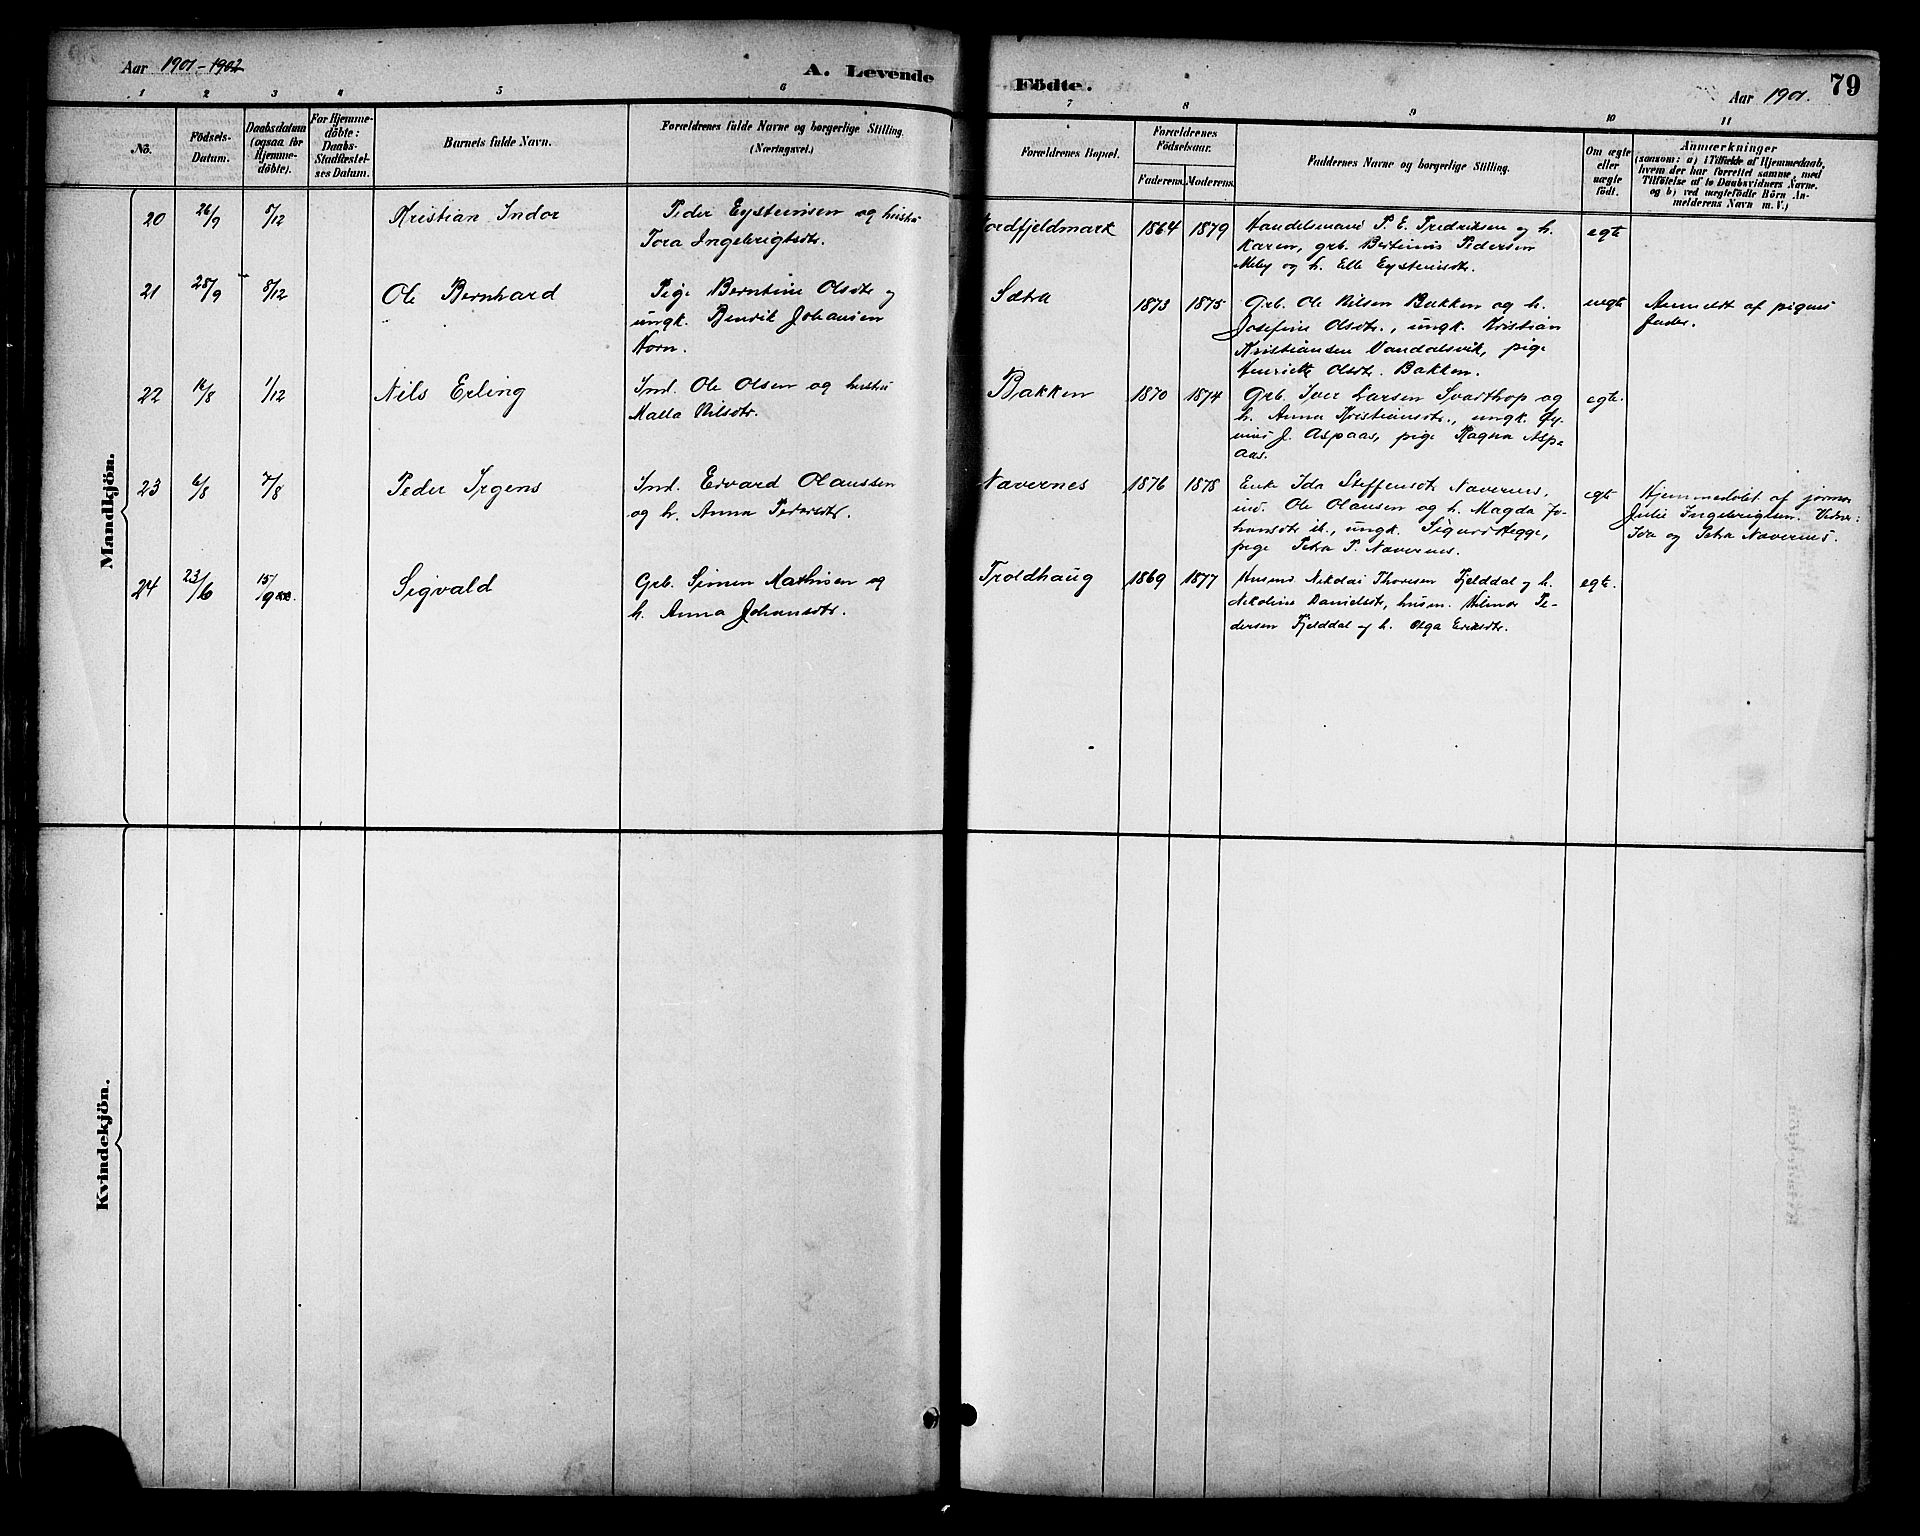 Aar 1901-1902
A. Levende
Födte.
Aar 1901.
79
1 2 3 4 5 6 7 8 9 10 11
No.
Födsels-
Datum.
Daabsdatum
(ogsaa for
Hjemme-
döbte).
For Hjemme-
döbte:
Daabs-
Stadfæstel-
ses Datum.
Barnets fulde Navn.
Forældrenes fulde Navne og borgerlige Stilling.
(Næringsvei.)
Forældrenes Bopæl.
Forældrenes
Födselsaar.
Faderens. Moderens.
Faddernes Navne og borgerlige Stilling.
Om ægte
eller
uægte
födt.
Anmærkninger
(saasom: a) i Tilfælde af Hjemmedaab,
hvem der har forrettet samme, med
Tilföielse af to Daabsvidners Navne,
og b) ved uægtefödte Börn An-
melderens Navn m. V.)
Mandkjön.
20 26/9 8/12 Kristian Indor
Peder Eysteinsen og hustru
Tora Ingebrigtsdtr.
Nordfjeldmark 1864 1879
Handelsmand P. E. Fredriksen og h.
Karen, grb. Pedersen
Meby og h. Elle Eysteinsdtr.
egte
21 28/9 8/12 Ole Bernhard
Pige Berntine Olsdtr og
ungk. Benrik Johansen
Horn.
Sætra 1873 1875
Grb. Ole Nilsen Bakken og h.
Josefine Olsdtr., ungk. Kristian
Kristiansen Vandalsvik, pige
Henriette Olsdtr. Bakken.
uegte
Anmeldt af pigens
fader.
22 16/8 1/12 Nils Erling
Ind. Ole Olsen og hustru
Malla Nilsdtr.
Bakken 1870 1874
Grb. Iver Larsen Svarthop og
h. Anna Kristiansdtr., ungk.
J. Aspaas, pige Ragna Asp-
aas.
egte.
23 6/8 7/8 Peder Irgens
Ind. Edvard Olaussen
og h. Anna Pedersdtr.
Nævernes 1876 1878
Enke Ida Steffensdtr Nævernes,
ind. Ole Olausen og h. Magda Jo-
hansdtr ib., ungk. Sigurd Hegge,
pige Petra P. Nævernes.
egte
Hjemmedøbt af jormor
Julie Ingebrigtsen. Vidner:
Ida og Petra Nævernes.
24 23/6 15/9 Sigvald
Grb. Simon Mathisen og
h. Anna Johansdtr.
Troldhaug 1869 1877
Husmd Nikolai Thoresen Fjelddal og h.
Nikoline Danielsdtr, husm. Hilmar Pe-
dersen Fjelddal og h. Olga Eriksdtr.
egte.
Kvindekjön.